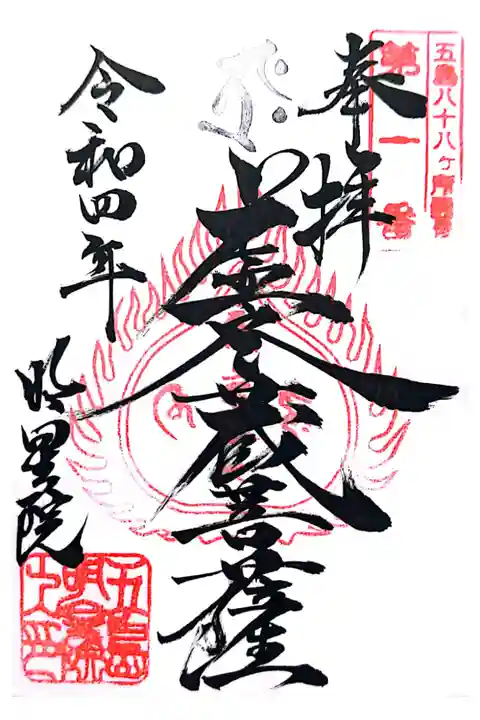 五島八十八ヶ所霊場
第一番
奉拝
虚空蔵菩薩
令和四年
明星院
五島
明星院